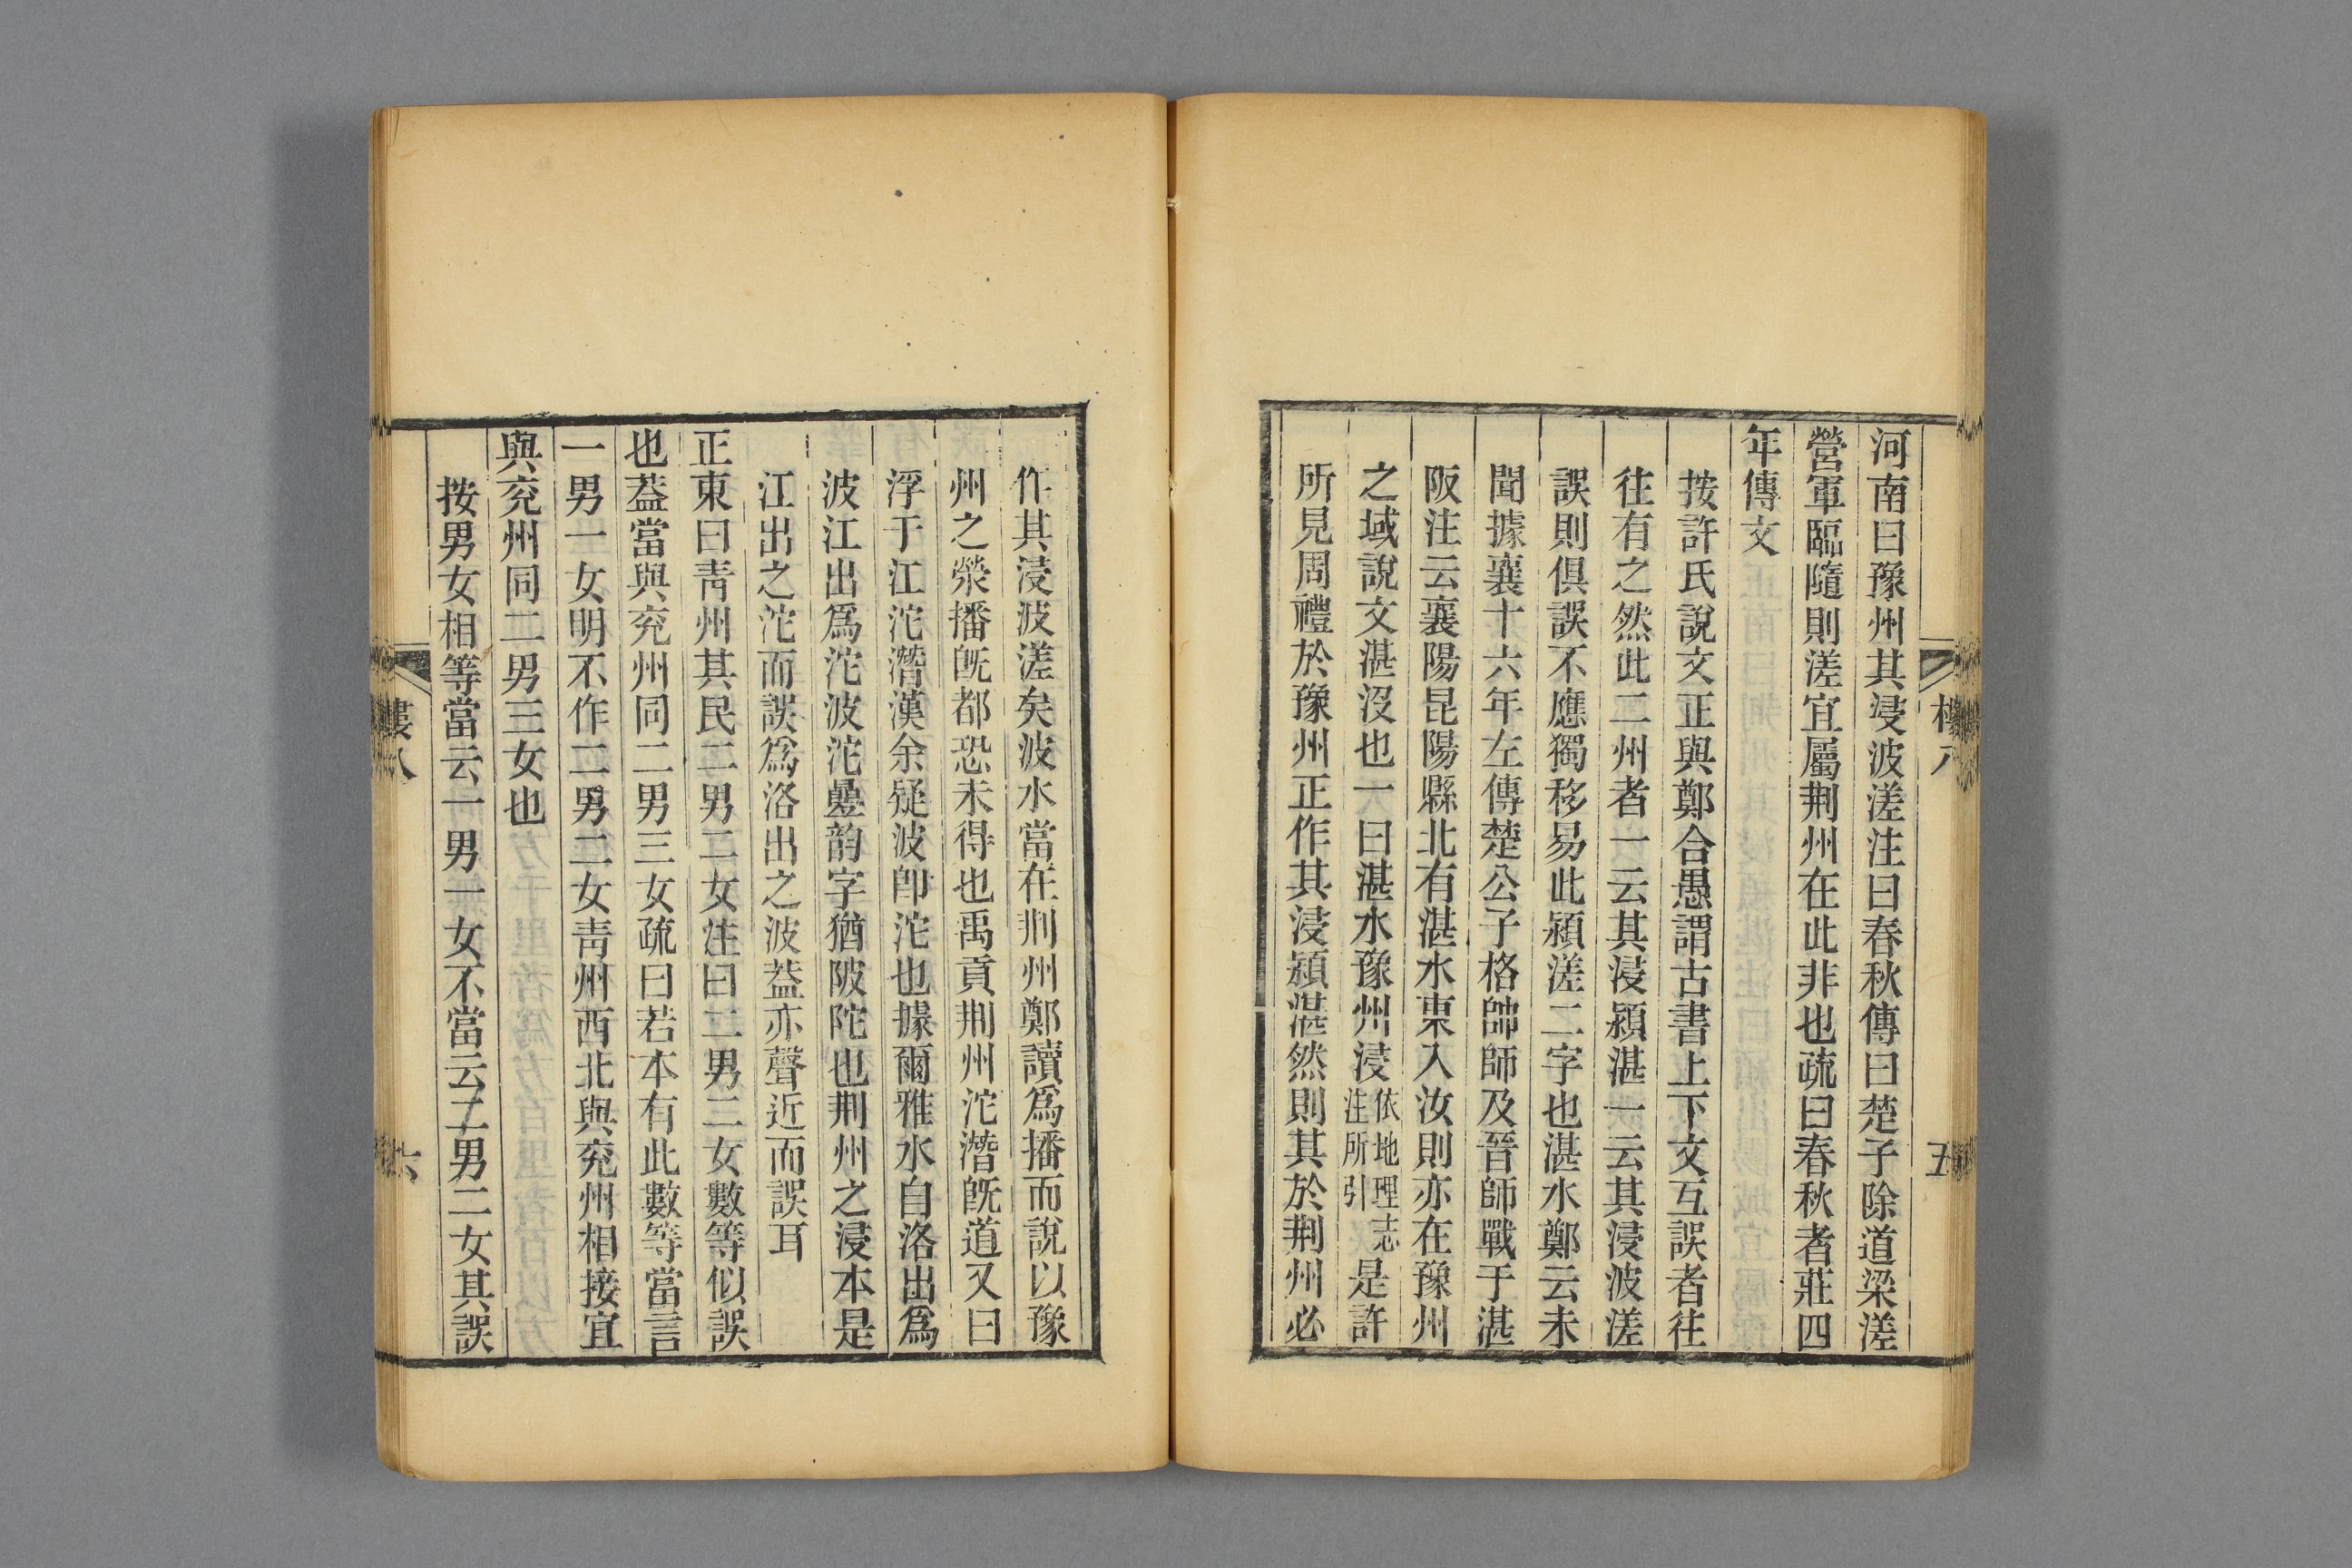 河南曰豫州其浸波溠注曰春秋傳曰楚子除道梁溠
營軍臨隨則溠宜屬荆州在此非也疏曰春秋者莊四
年傳文
按許氏說文正與鄭合愚謂古書上下文互誤者往
往有之然此二州者一云其浸潁湛一云其浸波溠
誤則俱誤不應獨移易此潁溠二字也湛水鄭云未
聞據襄十六年左傳楚公子格帥師及晉師戰于湛
阪注云襄陽昆陽縣北有湛水東入汝則亦在豫州
之域說文湛沒也一曰湛水豫州浸依地理志注所引是許
所見周禮於豫州正作其浸潁湛然則其於荆州必
五
作其浸波溠矣波水當在荆州鄭讀爲播而說以豫
州之滎播旣都恐未得也禹貢荆州沱潛旣道又曰
浮于江沱潛漢余疑波卽沱也據爾雅水自洛出爲
波江出爲沱波沱曡韵字猶陂陀也荆州之浸本是
江出之沱而誤爲洛出之波葢亦聲近而誤耳
正東曰靑州其民二男二女注曰二男二女數等似誤
也葢當與兖州同二男三女疏曰若本有此數等當言
一男一女明不作二男二女靑州西北與兖州相接宜
與兖州同二男三女也
按男女相等當云一男一女不當云二男二女其誤
樓八
六